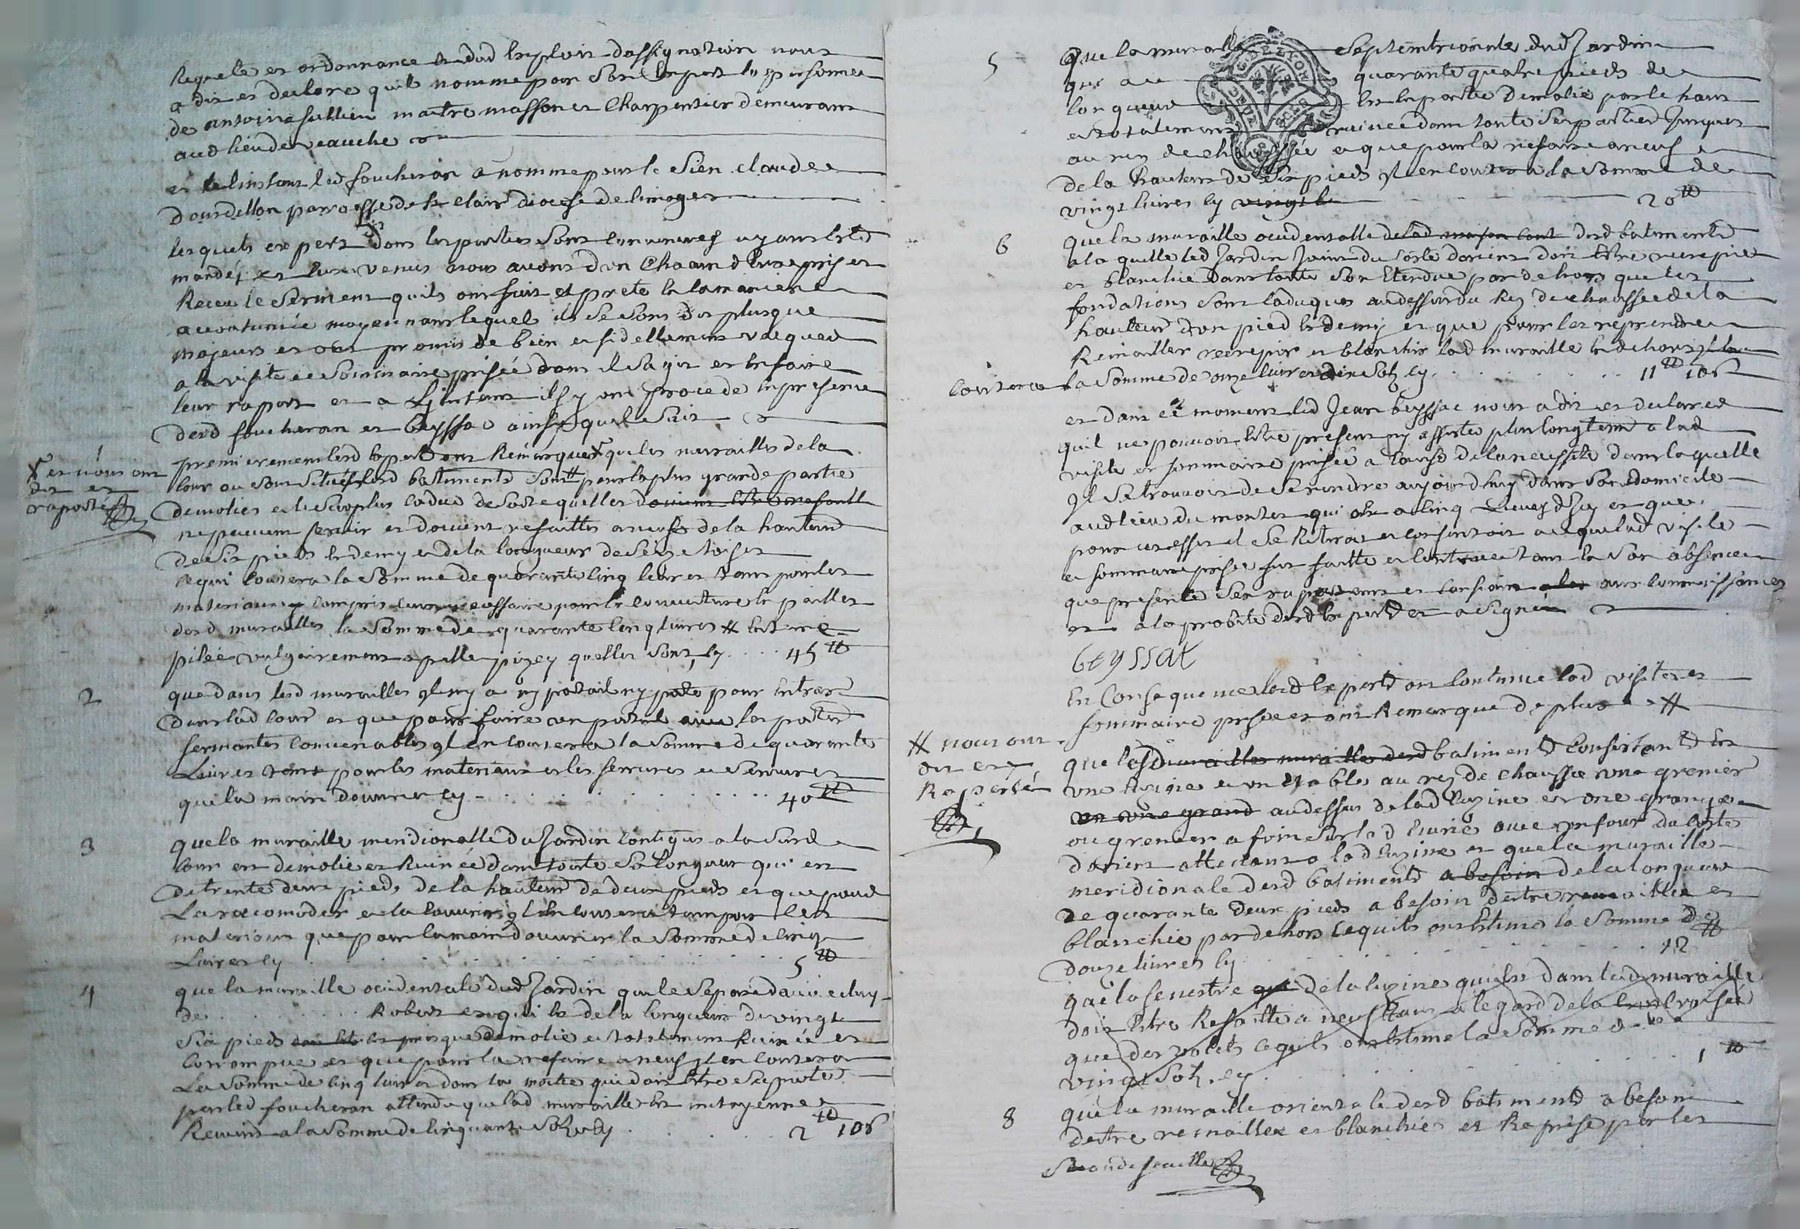 Requete et ordonnance dud Exploit dassignation nous
a dit et declare quil nomme pour son Expert la personne
de antoine sullien maitre masson et Charpentier demeurant
aud lieu de veauche
et a linstant led foucheran a nomme pour le sien claude
Dourdellon parroisse de st clair diocese de limoges
lesquels expertz dont les parties sont convenues ayant este
mandes et Eux venus nous avons d'un Chacun d Eux pris et
Receu le serment quils ont fait et prete En la maniere
accoutumée moyennant lequel ils se sont dit plus que
majeurs et ont promis de bien et fidellement vacquer
a la visite et sommaire prisée dont il sagit et En faire
leur raport et a Linstant ils y ont procede en presence
desd foucheran et beyssac ainsy que le suit
premierement lesd experts ont Remarque que les murailles de la
cour ou sont situés lesd bastiments sont pour la plus grande partie
demolies et le surplus caduc de sorte quelles
ne peuvent servir et doivent Estre refaittes a neufs de la hauteur
de six pieds Et demy et de la longueur de seize toises
ce qui coutera la somme de quarante cinq livres tant pour les
materiaux y compris necessaire pour la couverture de pailles
desd murailles la somme de quarante cinq livres # En terre
pilée vulgairement apellé pizey quelles sont, cy .... 45 ₶
X et nous ont
dit et
raporté
2 que dans lesd murailles il ny a ny portail ny porte pour Entrer
Dans lad cour et que pour faire un portail avec les portes
fermantes convenables il en coutera la somme de quarante
Livres tant pour les materiaux et les ferrures et serrures
que la main douvrier cy .... 40 ₶
3 que la muraille meridionelle du Jardin contigue a la susd
cour est demolie et Ruinée dans toute sa longueur qui est
De trente deux pieds de la hauteur de deux pieds et que pour
La racomoder et la couvrir il En coutera tant pour les
materiaux que pour la main douvrier la somme de cinq
Livres cy .... 5 ₶
4 que la muraille occidentale dud Jardin qui le separe davec celuy
de ........ Robert et qui Est de la longueur de vingt
six pieds Est presque demolie et totalement Ruinée et
corrompue et que pour la refaire a neuf il en coutera
La somme de cinq livres dont la moitie qui doit Etre suportée
par led foucheran attendu que lad muraille Est mitoyenne
Revient a la somme de cinquante sols cy .... 2 ₶ 10 s
5 Que la muraille septentrionale dud Jardin
qui a quarante quatre pieds de
longueur Est En partie demolie par le haut
et totalement ruinée dans toute sa partie Jusques
au rez de chaussée et que pour la refaire a neuf
de la hauteur de six pieds il en coutera la somme de
vingt livres cy .... 20 ₶
6 que la muraille occidentalle desd batiments
a la quelle led Jardin Joint du coste dorient doit Etre recrepie
et blanchie dans toute son Etendue par dehors que les
fondations sont caduques au dessous du Rez de chaussée de la
hauteur d'un pied Et demy et que pour les reprendre
Remailler recrepir et blanchir lad muraille En dehors il En
coutera la somme de onze livres dix sols cy .... 11 ₶ 10 s
et dans ce moment led Jean beyssac nous a dit et declare
quil ne pouvoit Etre present ny assister plus longtems a lad
visite et sommaire prisée a cause de la necessité dans laquelle
Il se trouvoit de se rendre aujourdhuy dans son domicile
aud lieu du montet qui est a cinq Lieues d'Icy et que
pour cet effet il se Retiroit et consentoit a ce que lad visite
et sommaire prisée fut faitte et continuée tant En son absence
que presence sen raportant aux connoissances
et a la probité desd Expertz et a signé
beyssat
En Consequence lesd Expertz ont continue lad visite et
sommaire prisée et ont Remarque de plus #
# nous ont
dit et
Raporté
que lesd batiments Consistant En
une cuizine et un Etable au rez de chaussee une grenier
au dessus de lad cuizine et une grange
ou grenier a foin sur lad Ecurie avec un four du coste
dorient attenant a lad cuzine et que la muraille
meridionale desd batiments de la longueur
de quarante deux pieds a besoin detre remaillée et
blanchie par dehors ce quils ont Estimé la somme de
douze livres cy .... 12 ₶
que la fenestre de la cuzine qui Est dans lad muraille
doit Etre Refaitte a neuf tant a legard de la croisée
que des volets ce quils ont Estime la somme de
vingt sols cy .... 1 ₶
8 que la muraille orientale desd batiments a besoin
detre remaillée et blanchie et Reprise par les
Seconde feuille